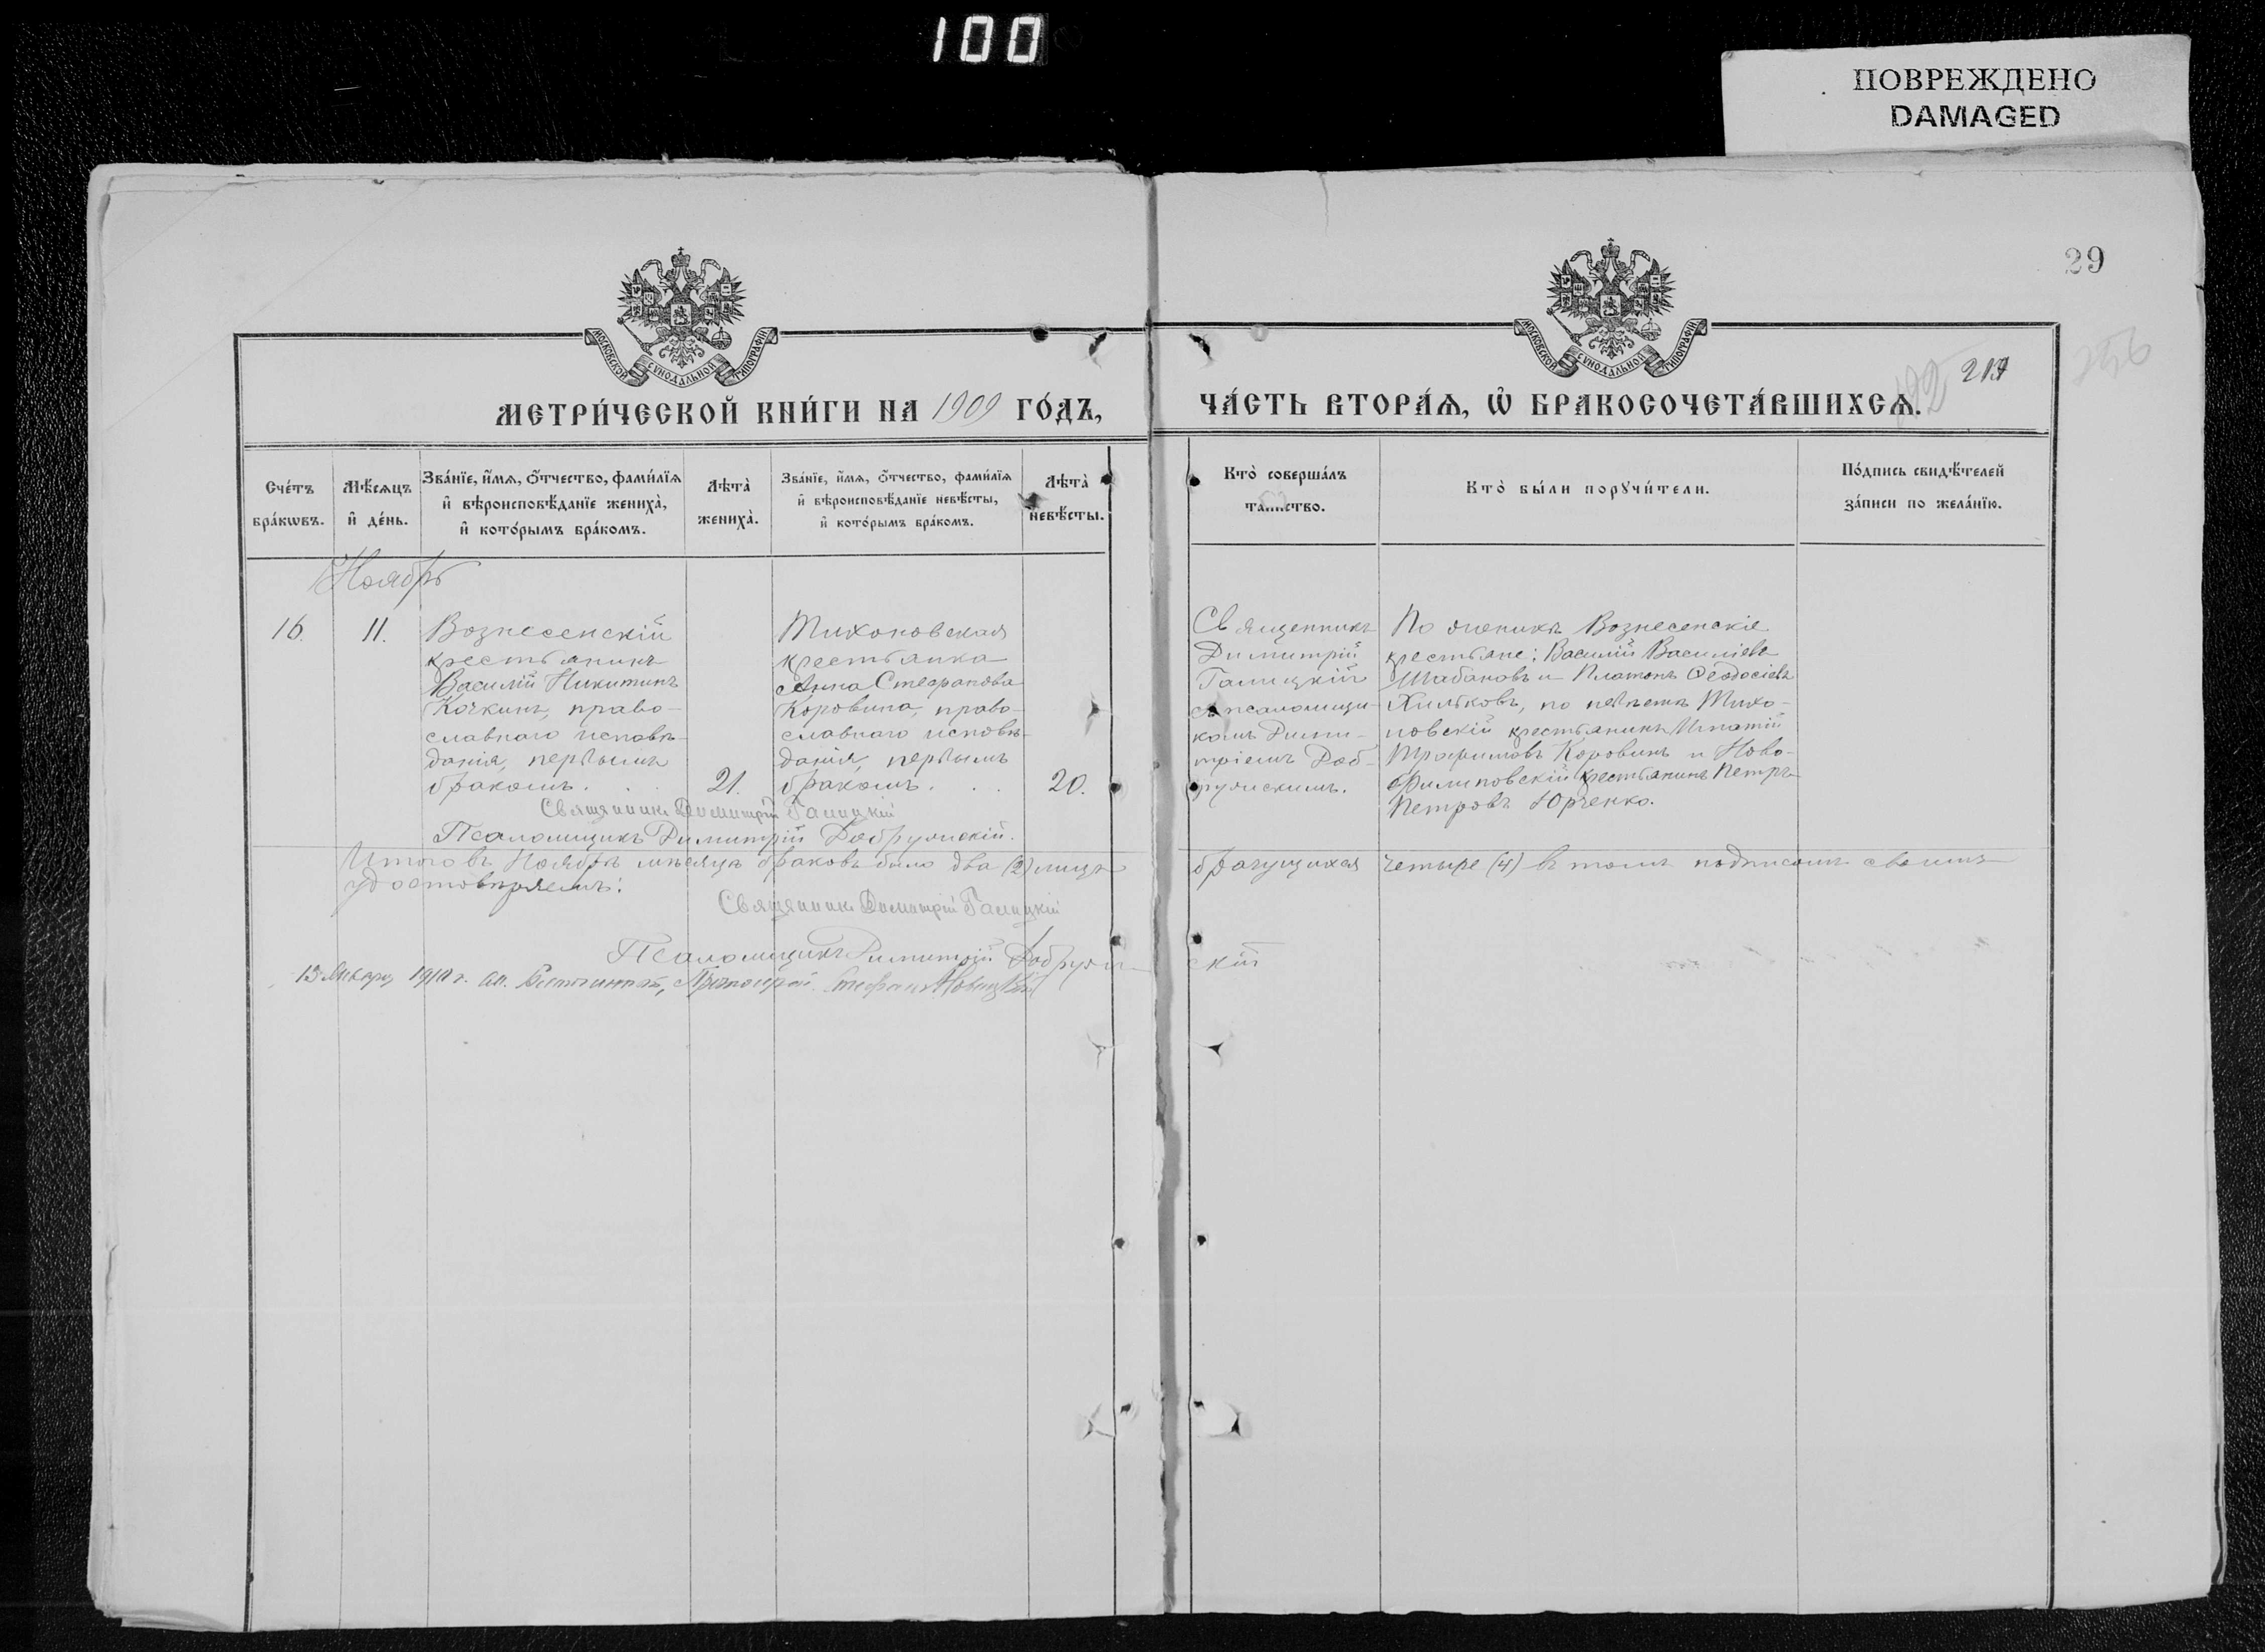 100
ПОВРЕЖДЕНО
DAMAGED
29
МОСКОВСКОЙ СѴНОДАЛЬНОЙ ТИПОГРАФІИ
МОСКОВСКОЙ СѴНОДАЛЬНОЙ ТИПОГРАФІИ
256
МЕТРИ́ЧЕСКОЙ КНИ́ГИ НА 1909 ГО́ДЪ,
ЧА́СТЬ ВТОРА́Ѧ, Ѽ БРАКОСОЧЕТА́ВШИХСѦ.
Сче́тъ
бра́кѡвъ.
Мѣ́сѧцъ
и҆ де́нь.
Зва́нїе, и҆́мѧ, ѻ҆́тчество, фами́лїѧ
и҆ вѣроисповѣ́данїе жениха̀,
и҆ кото́рымъ бра́комъ.
Лѣта̀
жениха̀.
Зва́нїе, и҆́мѧ, ѻ҆́тчество, фами́лїѧ
и҆ вѣроисповѣ́данїе невѣ́сты,
и҆ кото́рымъ бра́комъ.
Лѣта̀
невѣ́сты.
Кто̀ соверша́лъ
таинство.
Кто̀ бы́ли порꙋчи́тели.
По́дпись свидѣ́телей
за́писи по жела́нїю.
Ноябрь
16.
11.
Вознесенскій
крестьянинъ
Василій Никитинъ
Кочкинъ, право-
славнаго исповѣ-
данія, первымъ
бракомъ. . .
21.
Тихоновская
крестьянка
Анна Стефанова
Коровина, право-
славнаго исповѣ-
данія, первымъ
бракомъ. . .
20.
Священникъ
Димитрій
Галицкій
съ псаломщи-
комъ Дими-
тріемъ Доб-
румскимъ.
По женихѣ Вознесенскіе
крестьяне: Василій Василіевъ
Шабановъ и Платонъ Ѳеодосіевъ
Хильковъ, по невѣстѣ Тихо-
новскій крестьянинъ Игнатій
Трофимовъ Коровинъ и Ново-
филиповскій крестьянинъ Петръ
Петровъ Юрченко.
Священникъ Димитрій Галицкій
Псаломщикъ Димитрій Добрумскій.
Итого въ Ноябрѣ мѣсяцѣ браковъ было два (2) лицъ брачущихся четыре (4) въ томъ подписомъ своимъ
удостовѣряемъ:
Священникъ Димитрій Галицкій
Псаломщикъ Димитрій Добрумскій
13 Января 1910 г.